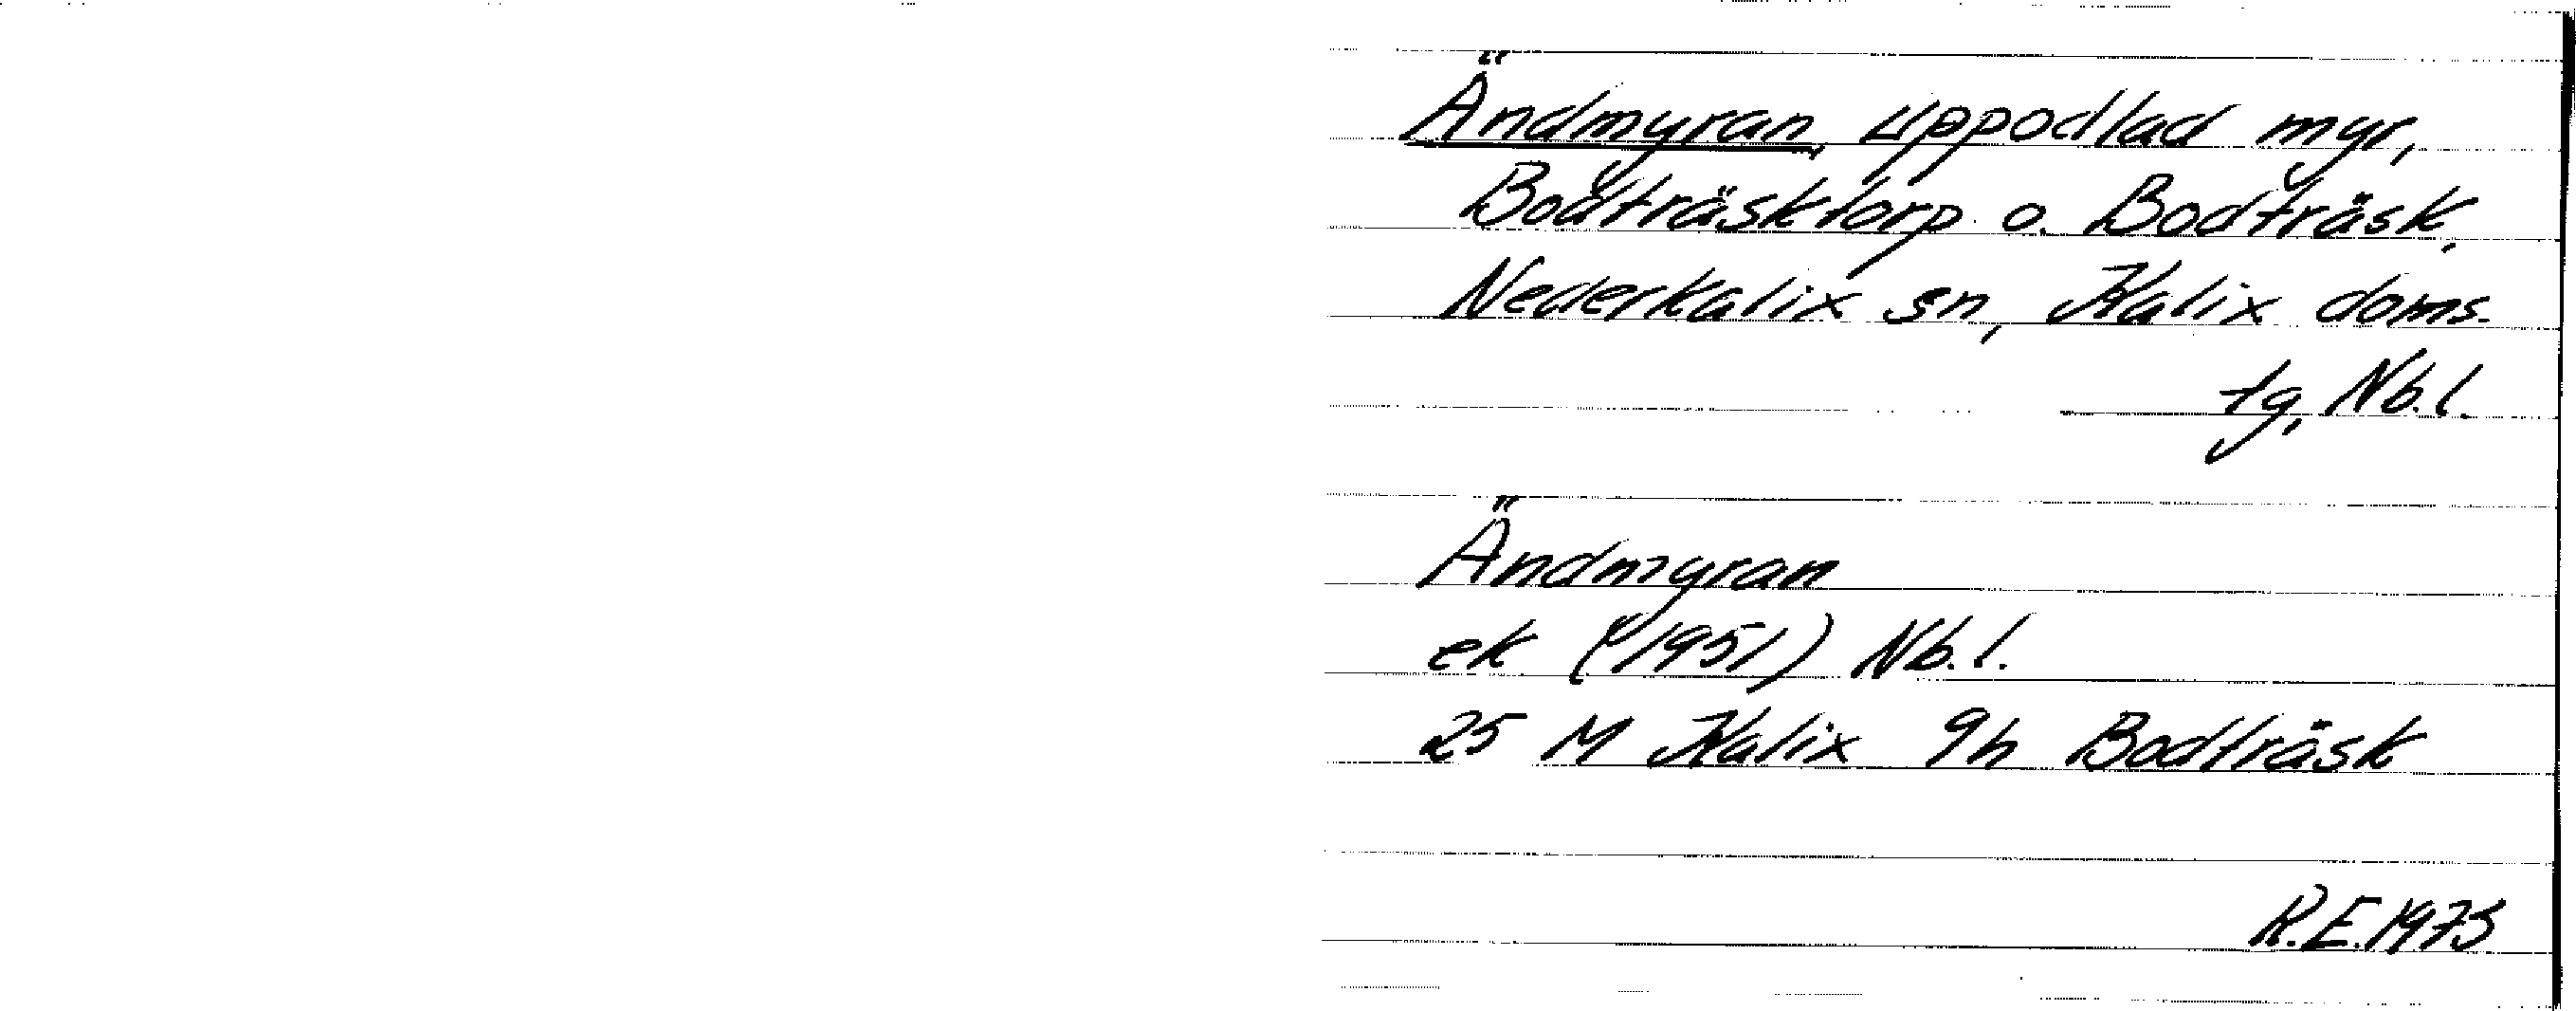 Ändmyran, uppodlad myr,
Bodträsktorp o. Bodträsk,
Nederkalix sn, Kalix doms.
tg, Nb.l.
Ändmyran
ek (1951) Nb.l.
25 M Kalix 9h Bodträsk
R.E. 1973